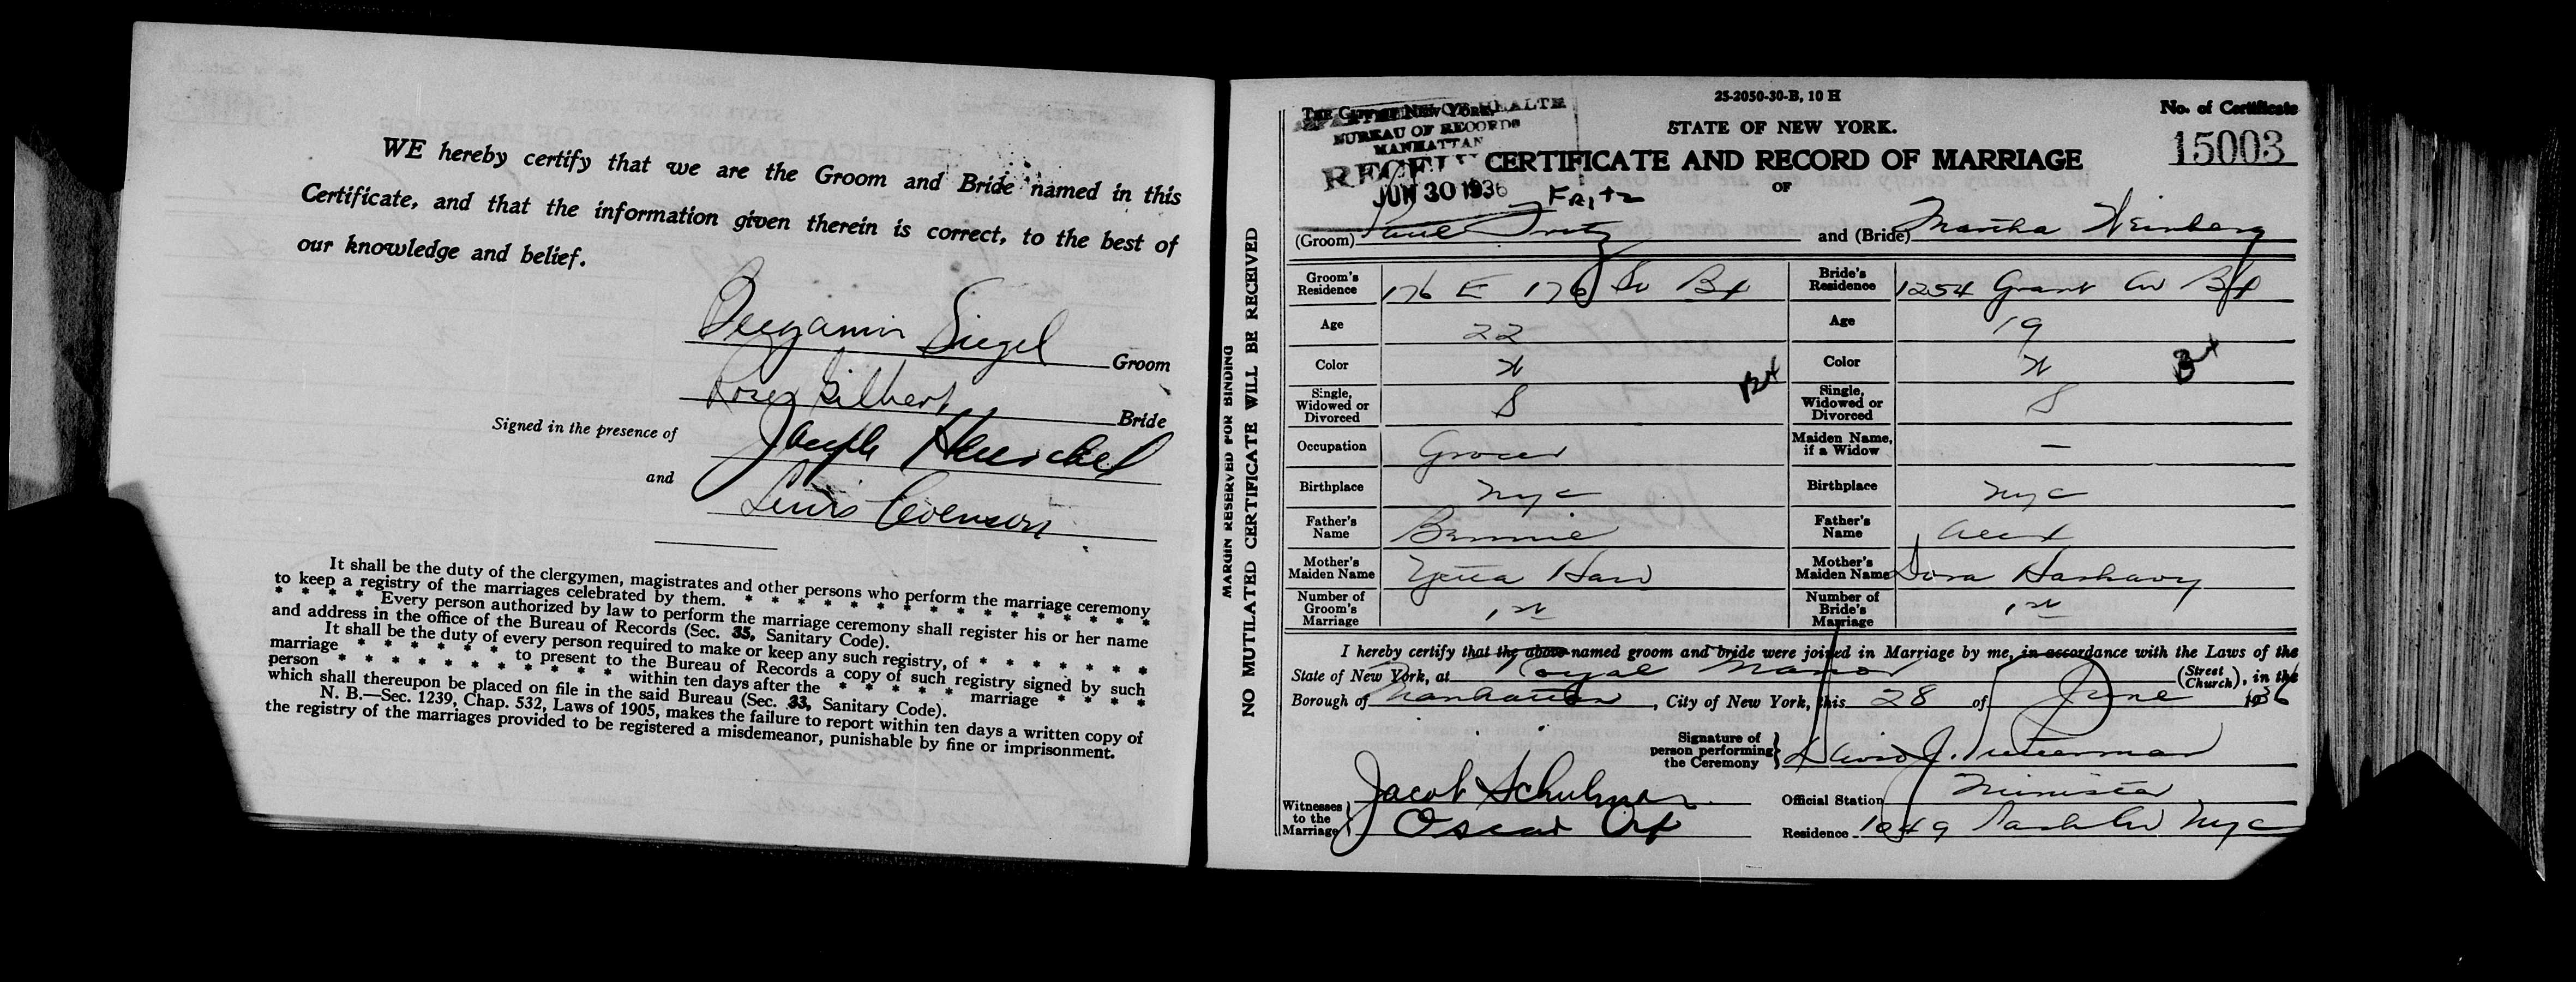 WE hereby certify that we are the Groom and Bride named in this
Certificate, and that the information given therein is correct, to the best of
our knowledge and belief.
Benjamin Siegel Groom
Rose Gilbert Bride
Signed in the presence of Joseph Herschel
and Lewis Levenson
It shall be the duty of the clergymen, magistrates and other persons who perform the marriage ceremony
to keep a registry of the marriages celebrated by them. * * * * * * * * * * * * * * *
* * * * Every person authorized by law to perform the marriage ceremony shall register his or her name
and address in the office of the Bureau of Records (Sec. 35, Sanitary Code).
It shall be the duty of every person required to make or keep any such registry, of * * * * * * *
marriage * * * * * * to present to the Bureau of Records a copy of such registry signed by such
person * * * * * * * * * * * within ten days after the * * * * * marriage * * * *
which shall thereupon be placed on file in the said Bureau (Sec. 33, Sanitary Code).
N. B.—Sec. 1239, Chap. 532, Laws of 1905, makes the failure to report within ten days a written copy of
the registry of the marriages provided to be registered a misdemeanor, punishable by fine or imprisonment.
MARGIN RESERVED FOR BINDING
NO MUTILATED CERTIFICATE WILL BE RECEIVED
25-2050-30-B, 10 H
The City of New York. HEALTH
BUREAU OF RECORDS
MANHATTAN
JUN 30 1936
STATE OF NEW YORK.
No. of Certificate
15003
CERTIFICATE AND RECORD OF MARRIAGE
OF
FRITZ
(Groom) Paul Fritz and (Bride) Martha Weinberg
Groom's Residence 176 E 176 St Bx Bride's Residence 1254 Grant Av Bx
Age 22 Age 19
Color W Color W
Bx Bx
Single, Widowed or Divorced S Single, Widowed or Divorced S
Occupation Grocer Maiden Name, if a Widow —
Birthplace NYC Birthplace NYC
Father's Name Bennie Father's Name Alex
Mother's Maiden Name Yetta Mother's Maiden Name Dora Harkavy
Number of Groom's Marriage 1st Number of Bride's Marriage 1st
I hereby certify that the above-named groom and bride were joined in Marriage by me, in accordance with the Laws of the
State of New York, at Royal Manor (Street Church), in the
Borough of Manhattan, City of New York, this 28 of June 1936
Signature of person performing the Ceremony David J.
Witnesses to the Marriage Jacob Schulman
Oscar
Official Station Minister
Residence 1049 NYC